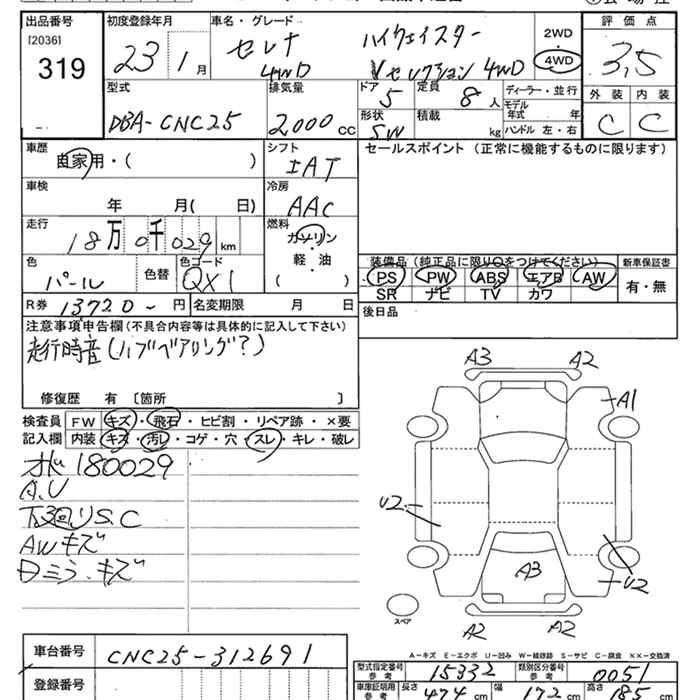 出品番号 初度登録年月 車名・グレード 評価点
[2036]
319
23 1月
セレナ ハイウェイスター 2WD
4WD Vセレクション 4WD 4WD
3,5
型式 排気量 ドア 定員 ディーラー・並行 外装 内装
DBA-CNC25 2000cc 5 8人 モデル年式 年
形状 積載
SW kg ハンドル 左・右 C C
車歴 シフト セールスポイント（正常に機能するものに限ります）
自家用・（ ） IAT
車検 冷房
年 月（ 日） AAC
走行 燃料
18万0千029km ガソリン
軽・油
（ ）
色 色替 色コード 装備品（純正品に限り○をつけてください） 新車保証書
パール QX1 PS PW ABS エアB AW 有・無
SR ナビ TV カワ
R券 13720-円 名変期限 月 日 後日品
注意事項申告欄（不具合内容等は具体的に記入して下さい）
走行時音（ハブベアリング？）
修復歴 有 〔箇所 〕
検査員 FW キズ・飛石・ヒビ割・リペア跡・×要
記入欄 内装 キズ・汚レ・コゲ・穴・スレ・キレ・破レ
180029
A.U
下廻りS.C
AWキズ
Dミラ.キズ
A3 A2
A1
U2
A3
U2
A2 A2
スペア
A－キズ E－エクボ U－凹み W－補修跡 S－サビ C－腐食 XX－交換済
車台番号 CNC25-312691
登録番号
型式指定番号 参考 15332 類別区分番号 参考 0051
車庫証明用 参考 長さ 474cm 幅 172cm 高さ 185cm